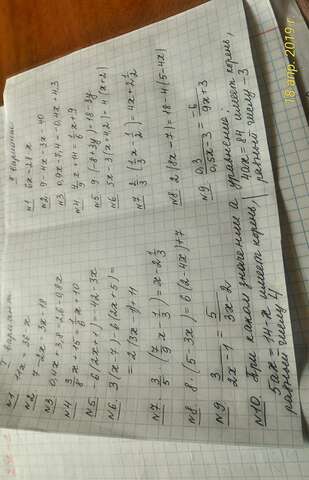 I вариант
№1 14x = 36 x
№2 7-2x 3x-18
№3 0,4x+3,8=2,6-0,8x
№4 3/8 x+15 = 1/6 x+10
№5 -6(2x+1)=42-3x
№6 3(x-7)-6(2x+5)=
= 2(3x-1)+11
№7. 3/5 (7/9 x - 1/3) = x-2 1/3
№8 8·(5-3x)=6(2-4x)+7
№9 3/(2x-1) = 5/(3x-2)
№10. При каком значении а уравнение:
5ax=14-x имеет корень,
равный числу 4
II вариант
№1 6x-28 x
№2 9-4x-3x-40
№3 0,9x-7,4=-0,4x+4,3
№5 9·(-8+3y)=18-3y
№6 5x-3(x+42)=4(x+2)
№7 1/3 (1/3 x - 1/2) = 4x+2 1/2
№8 2(8x-7)=18-4(5-4x)
№9 0,3/(0,5x-3) = -6/(9x+3)
4ax=84 имеет корень,
равный числу -3
18 апр. 2019 г